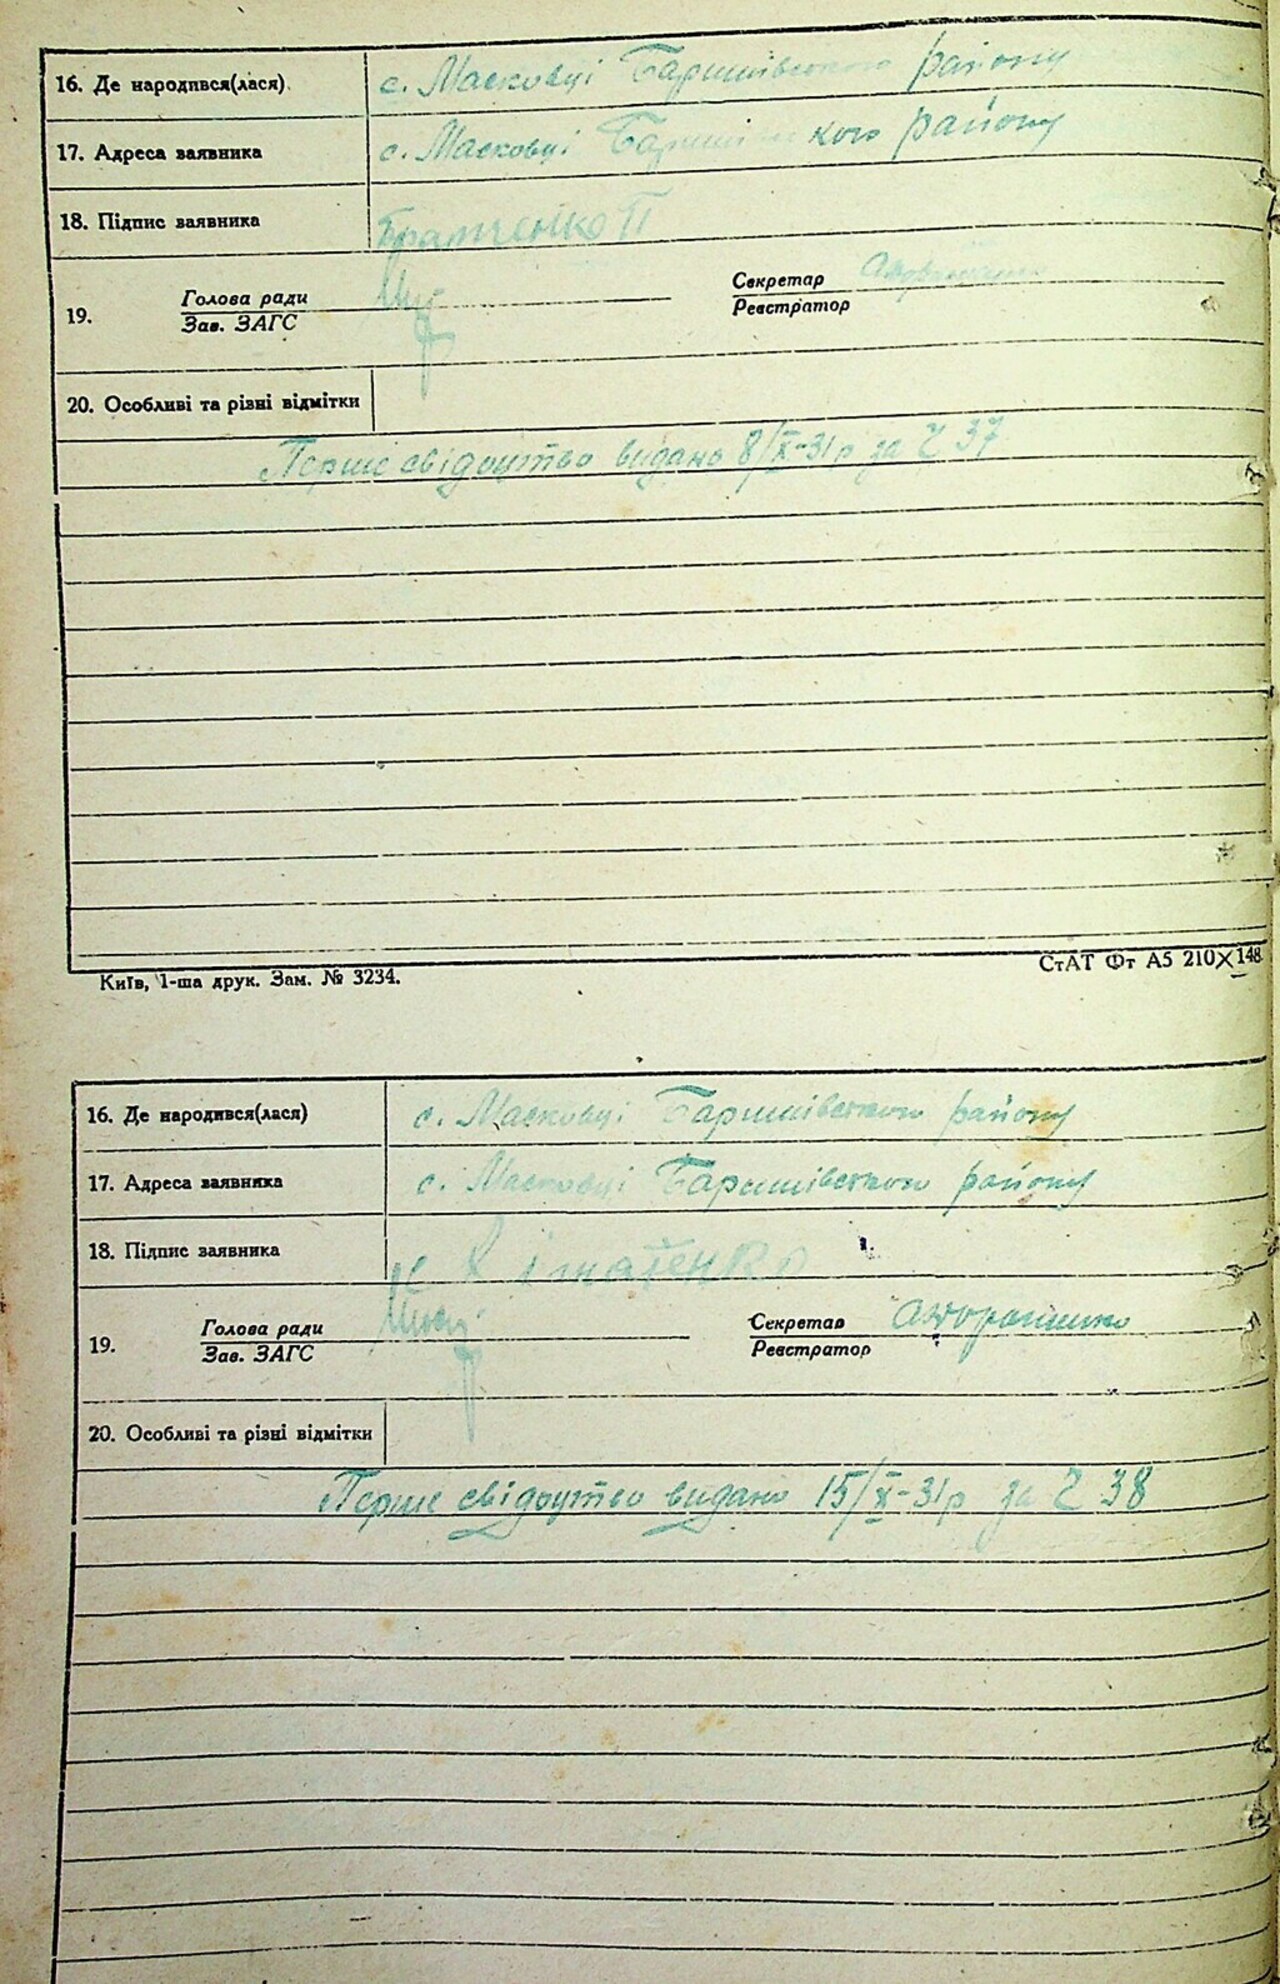 16. Де народився(лася) с. Масковці Баришівського району
17. Адреса заявника с. Масковці Баришівського району
18. Підпис заявника Братченко П
19. Голова ради Секретар
Зав. ЗАГС Реєстратор
20. Особливі та різні відмітки
Перше свідоцтво видано 8/X-31р за Ч 37
Київ, 1-ша друк. Зам. № 3234. СтАТ Фт А5 210X148
16. Де народився(лася) с. Масковці Баришівського району
17. Адреса заявника с. Масковці Баришівського району
18. Підпис заявника
19. Голова ради Секретар
Зав. ЗАГС Реєстратор
20. Особливі та різні відмітки
Перше свідоцтво видано 15/X-31р за Ч 38